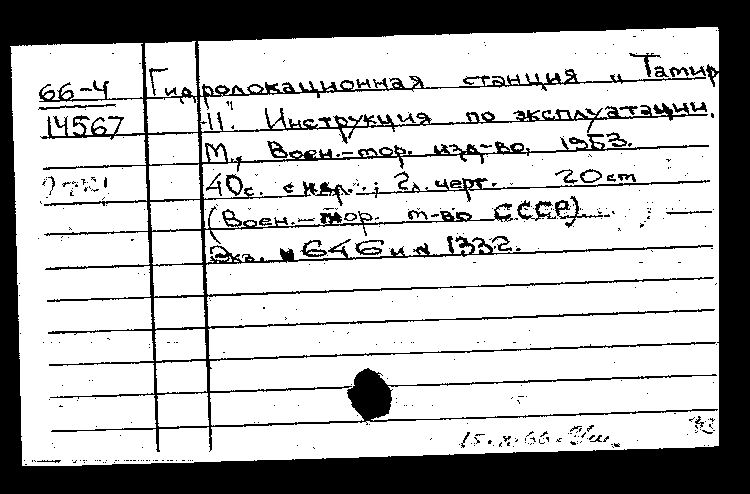 66-4
14567
Гидролокационная станция „Тамир
-11". Инструкция по эксплуатации.
М., Воен.-мор. изд-во, 1953.
40с. с илл.; 2л. черт. 20 см
(Воен.-мор. м-во СССР)
Экз. № 646 и № 1332.